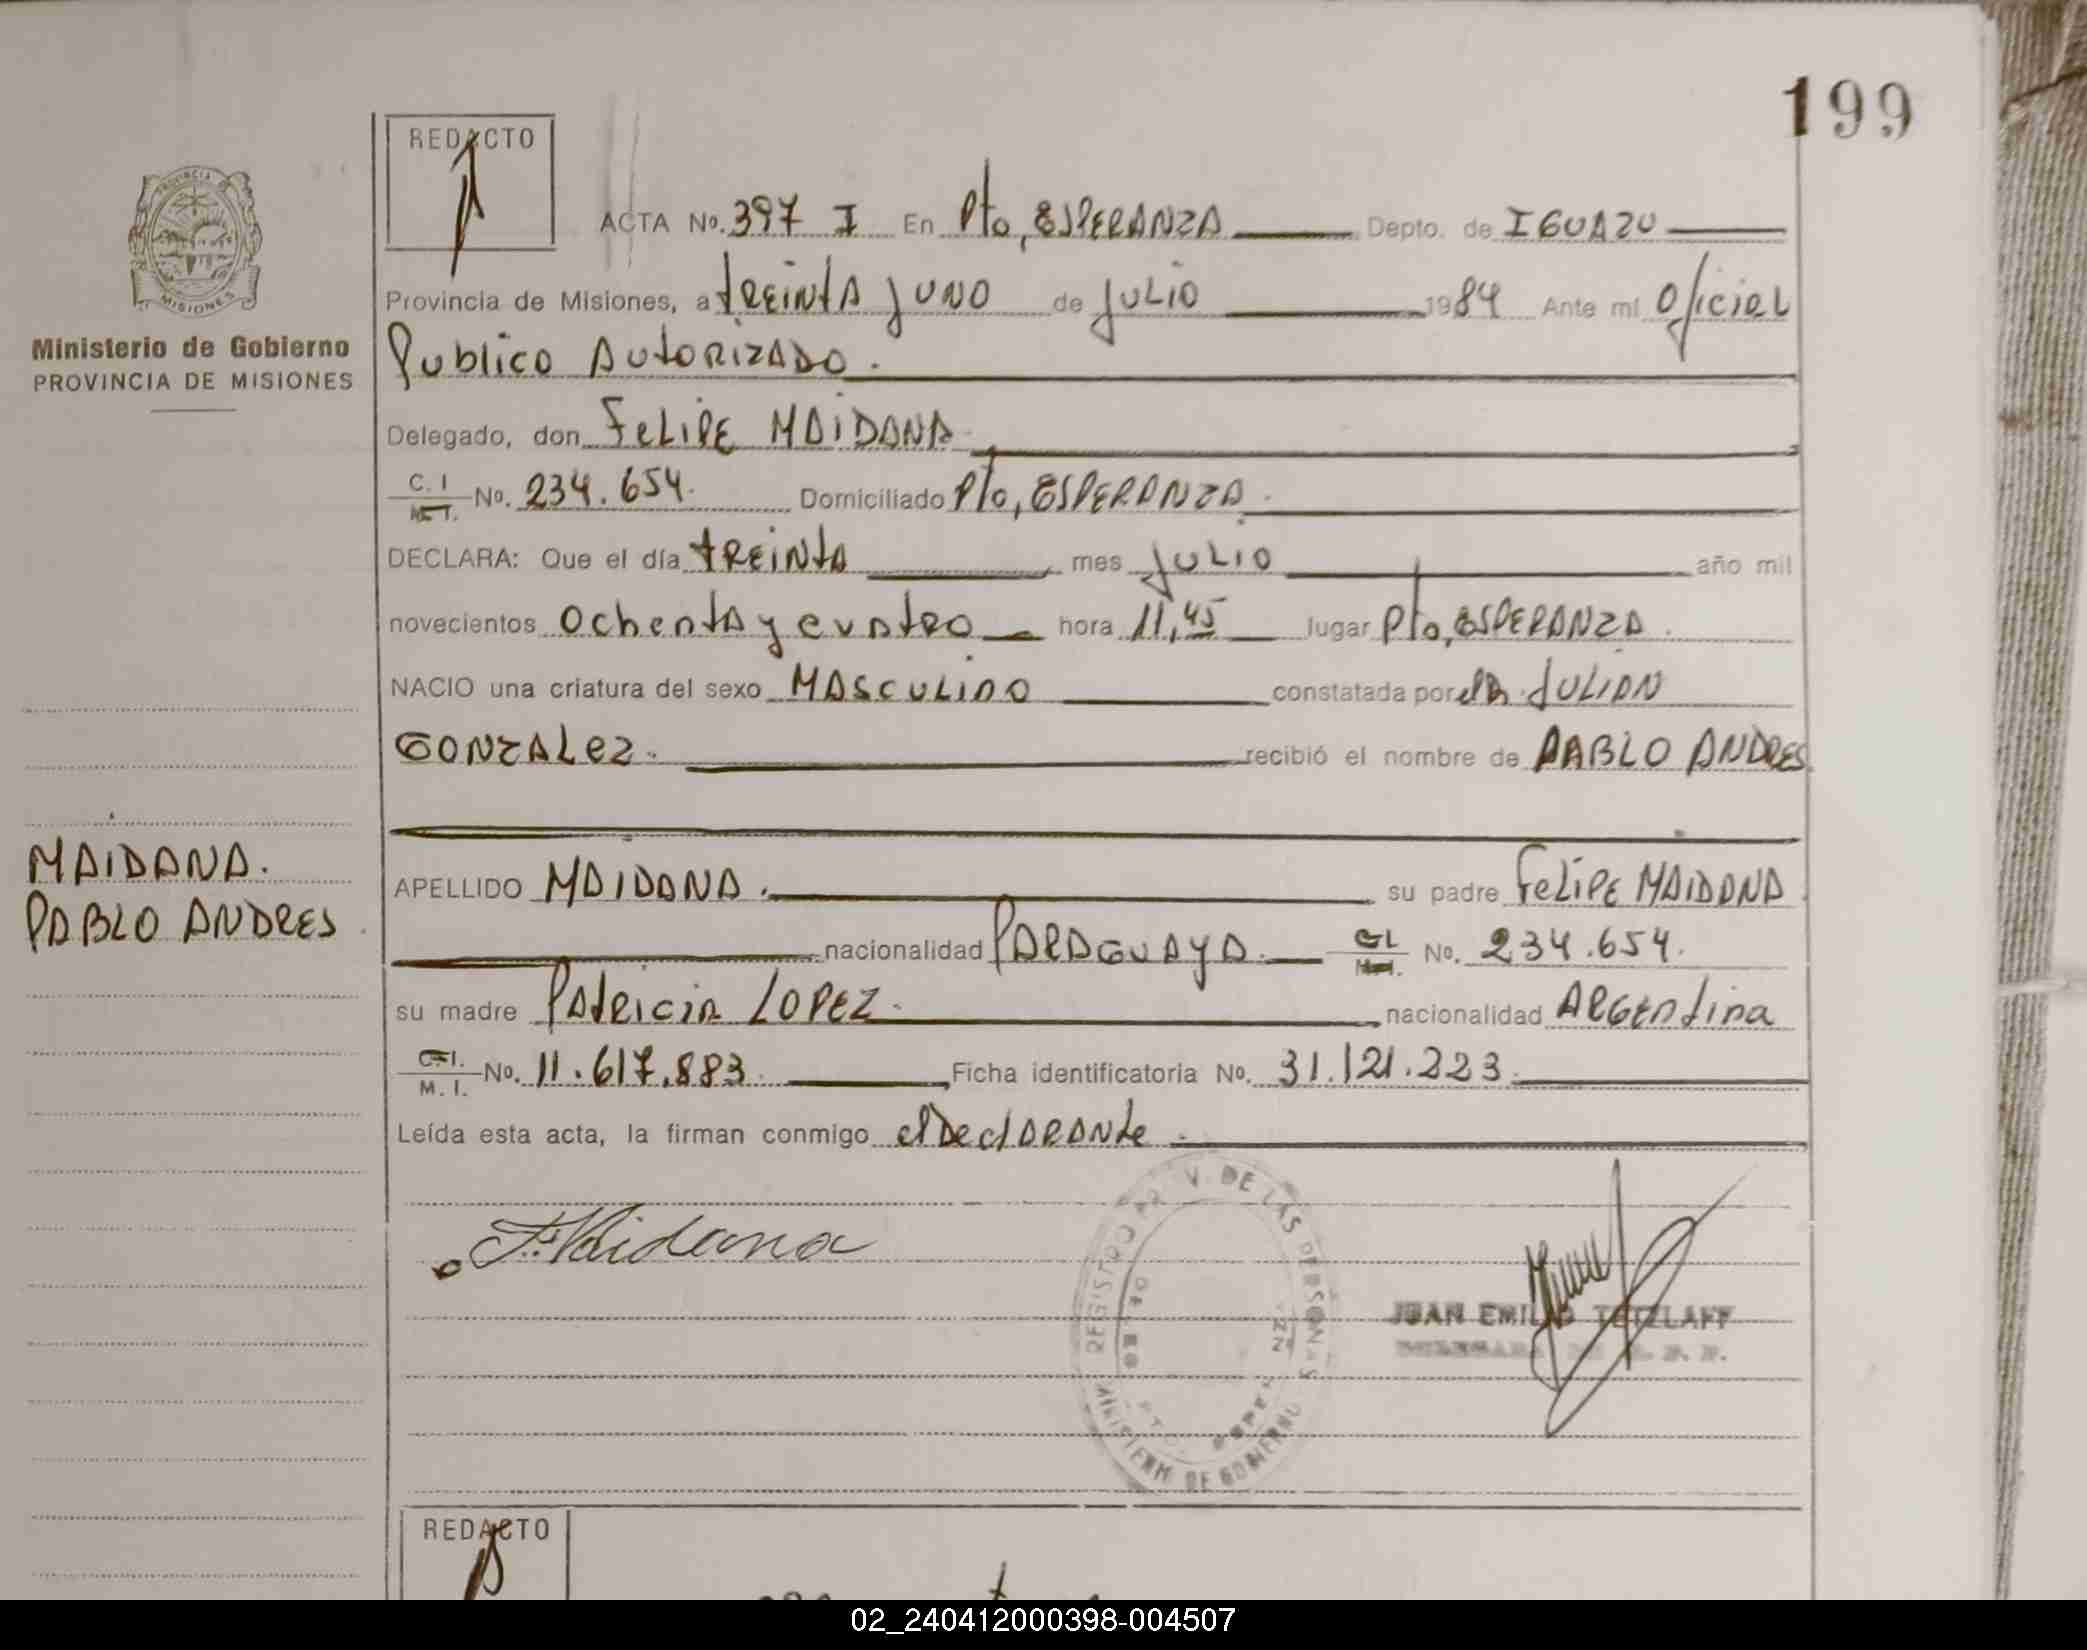 199
REDACTO
ACTA No. 397 I En Pto, ESPERANZA Depto. de IGUAZU
Provincia de Misiones, a treinta y uno de Julio 1984 Ante mi Oficial
Publico Autorizado.
PROVINCIA
MISIONES
Ministerio de Gobierno
PROVINCIA DE MISIONES
Delegado, don Felipe MAIDANA
C. I
M. I. No. 234.654. Domiciliado Pto, ESPERANZA.
DECLARA: Que el día treinta mes Julio año mil
novecientos ochenta y cuatro hora 11,45 lugar Pto, ESPERANZA.
NACIO una criatura del sexo MASCULINO constatada por JULIAN
GONZALEZ. recibió el nombre de PABLO ANDRES
MAIDANA.
PABLO ANDRES
APELLIDO MAIDANA. su padre Felipe MAIDANA
nacionalidad PARAGUAYA. C.I.
M.I. No. 234.654.
su madre Patricia LOPEZ. nacionalidad ARGENtina
C.I.
M. I. No. 11.617.883 Ficha identificatoria No. 31.121.223
Leída esta acta, la firman conmigo el DeclARANte.
F. Maidana
REGISTRO PROV. DE LAS PERSONAS
MINISTERIO DE GOBIERNO
JUAN EMILIO TETZLAFF
REDACTO
02_240412000398-004507